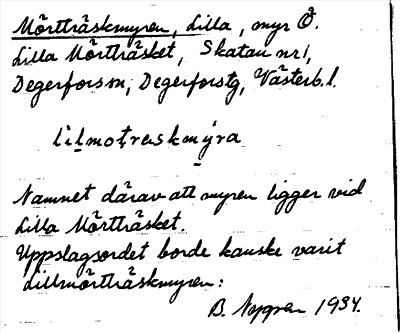 Mörtträskmyren, Lilla, myr Ö.
Lilla Mörtträsket, Skatan nr 1,
Degerforsm, Degerforstg, Västerb. l.
lilmotræskmýra
Namnet därav att myren ligger vid
Lilla Mörtträsket.
Uppslagsordet borde kanske varit
Lillmörtträskmyren:
B. Nygren 1934.